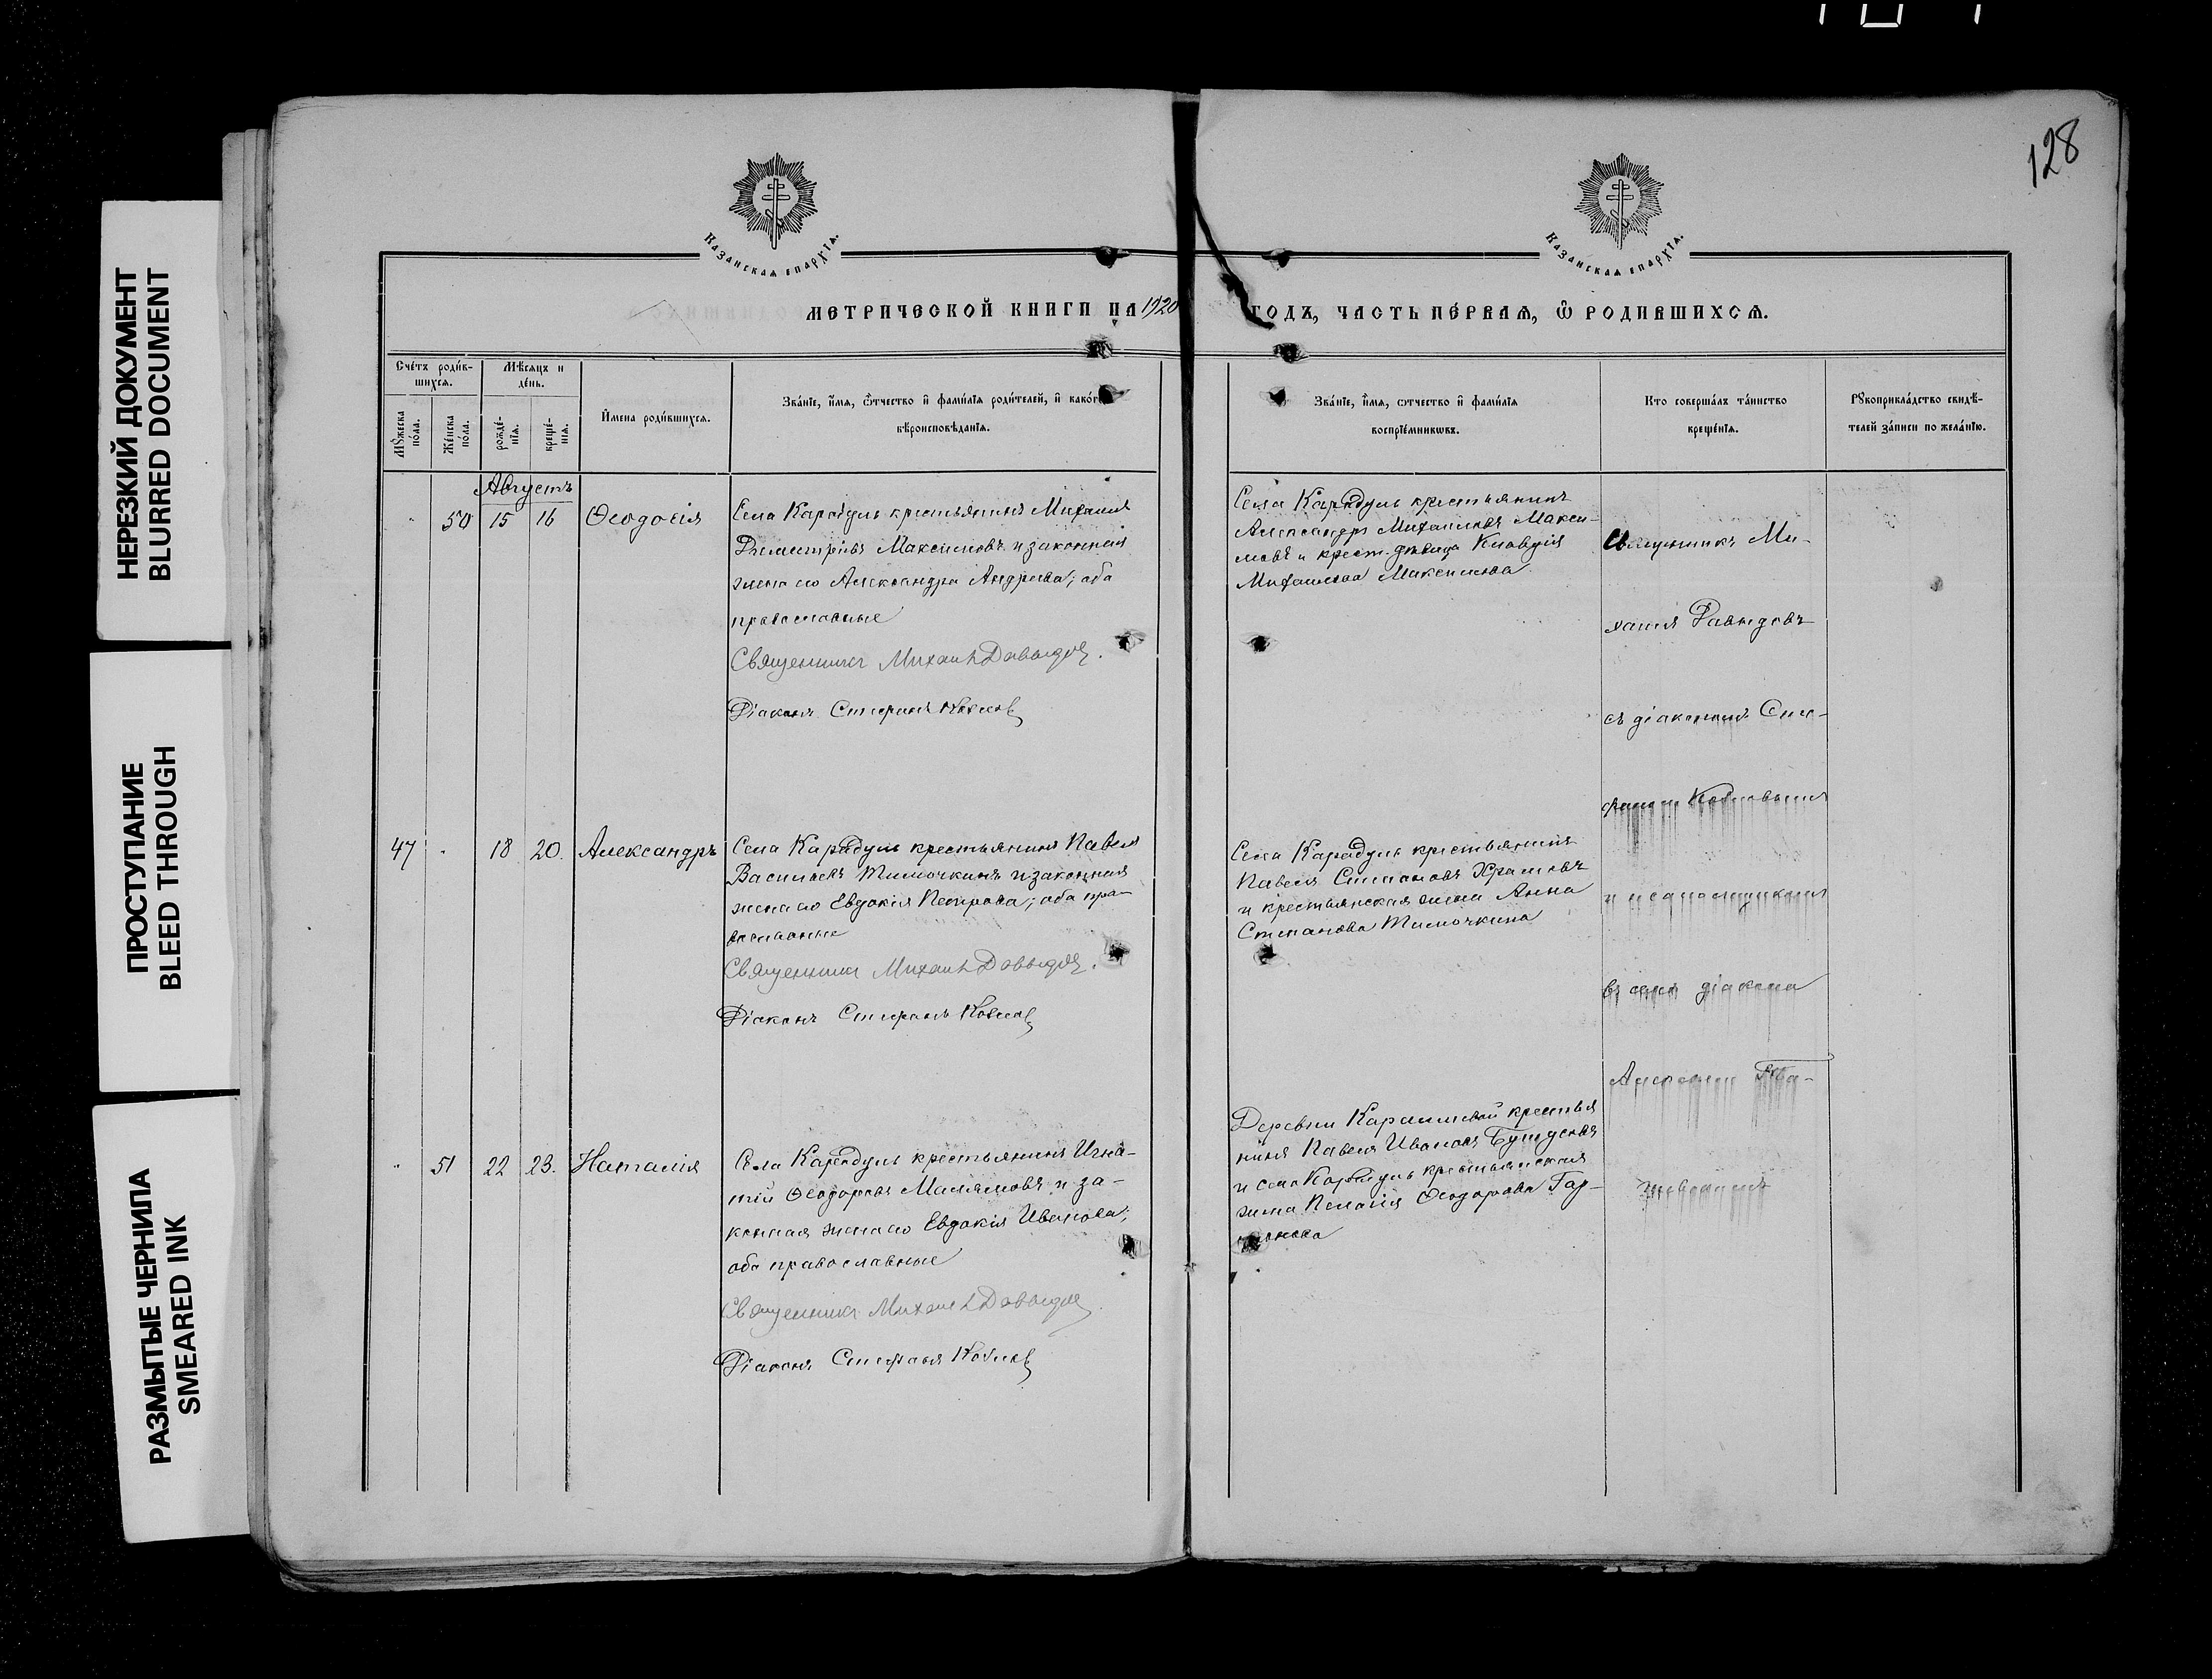 128
НЕРЕЗКИЙ ДОКУМЕНТ
BLURRED DOCUMENT
ПРОСТУПАНИЕ
BLEED THROUGH
РАЗМЫТЫЕ ЧЕРНИЛА
SMEARED INK
Казанская епархїѧ.
Казанская епархїѧ.
МЕТРИЧЕСКОЙ КНИГИ НА 1920
ГОДЪ, ЧАСТЬ ПЕ́РВАЯ, Ѡ РОДИВШИХСѦ.
Сче́тъ роди́в-
шихсѧ.
Мꙋ́жеска
по́ла.
Же́нска
по́ла.
Мѣ́сѧцъ и
де́нь.
рожде́-
нїѧ.
креще́-
нїѧ.
И҆мена роди́вшихсѧ.
Зва́нїе, и҆́мѧ, ѻ҆́тчество и҆ фами́лїѧ роди́телей, и҆ како́г
вѣроисповѣ́данїѧ.
Зва́нїе, и҆́мѧ, ѻ҆́тчество и҆ фами́лїѧ
воспрїе́мникωвъ.
Кто соверша́лъ та́инство
креще́нїѧ.
Рꙋкоприкла́дство свидѣ́-
телей за́писи по жела́нїю.
Августъ
50 15 16 Ѳеодосія
Села Карадуль крестьянинъ Михаилъ
Димитріевъ Максимовъ и законная
жена его Александра Андреева; оба
православные
Священникъ Михаил Давыдов.
Діаконъ Стефанъ Ковалев
Села Карадуль крестьянинъ
Александръ Михаиловъ Макси-
мовъ и крест. дѣвица Клавдія
Михаилова Максимова
Священникъ Ми-
хаилъ Давыдовъ
съ діакономъ Сте-
фаномъ
47 18 20. Александръ
Села Карадуль крестьянинъ Павелъ
Васильевъ Тимочкинъ и законная
жена его Евдокія Петрова; оба пра-
вославные
Священникъ Михаил Давыдов.
Діаконъ Стефанъ Ковалев
Села Карадуль крестьянинъ
Павелъ Степановъ Храмовъ
и крестьянская жена Анна
Степанова Тимочкина
и псаломщикомъ
въ санѣ діакона
51 22 23. Наталія
Села Карадуль крестьянинъ Игна-
тій Ѳеодоровъ Маклаковъ и за-
конная жена его Евдокія Иванова;
оба православные
Священникъ Михаил Давыдов.
Діаконъ Стефанъ Ковалев
Деревни крестья
нинъ Павелъ Ивановъ
и села Карадуль крестьянская
жена Пелагія Ѳеодорова Гор-